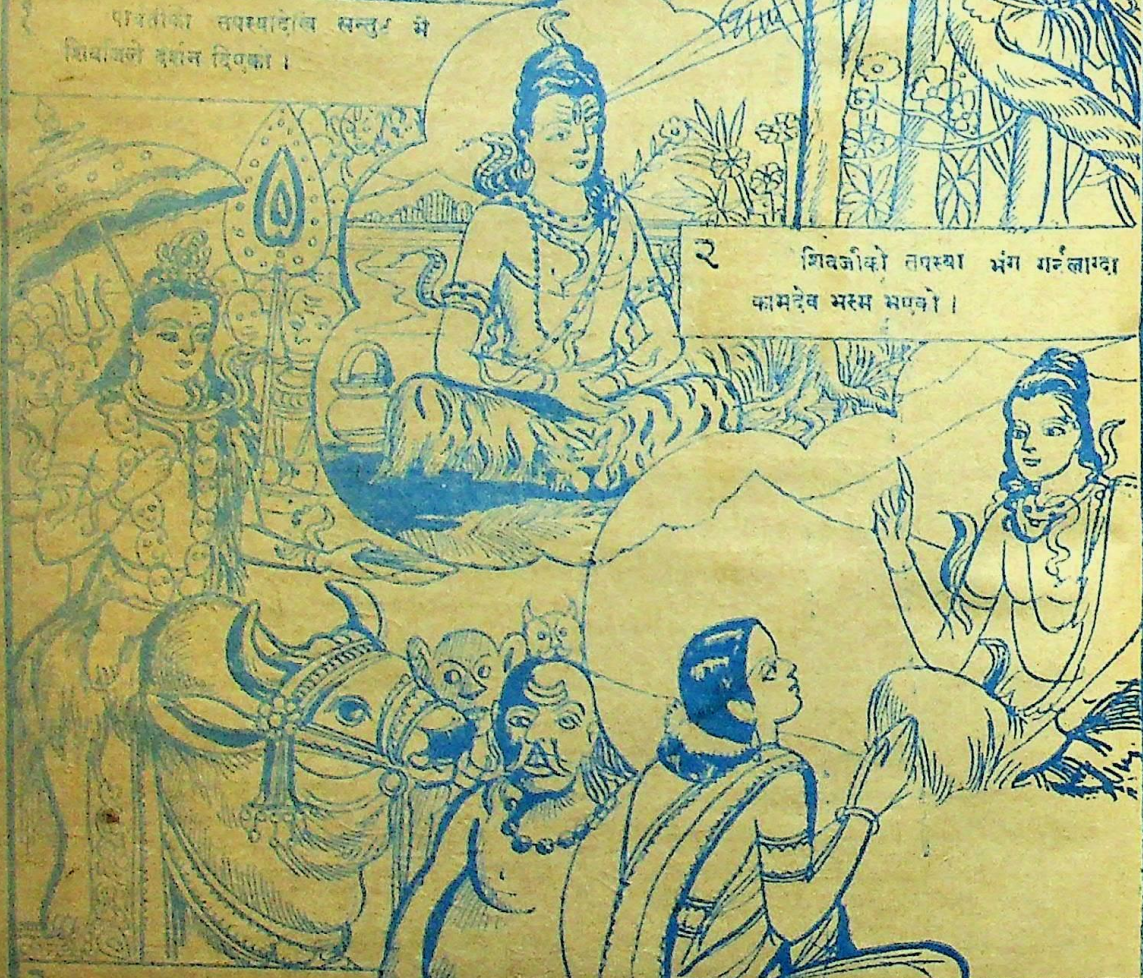 १ पार्वतीको तपस्यादेखि सन्तुष्ट भै
शिवजिले दर्शन दिएका ।
२ शिवजीको तपस्या भंग गर्नलाग्दा
कामदेव भस्म भएको ।